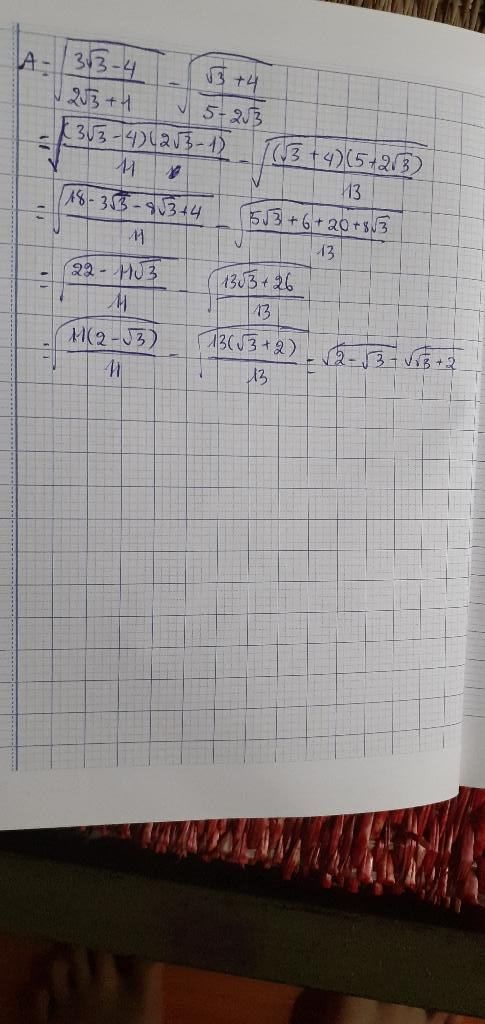 A = √((3√3 - 4)/(2√3 + 1)) - √((√3 + 4)/(5 - 2√3))
= √((3√3 - 4)(2√3 - 1)/11) - √((√3 + 4)(5 + 2√3)/13)
= √((18 - 3√3 - 8√3 + 4)/11) - √((5√3 + 6 + 20 + 8√3)/13)
= √((22 - 11√3)/11) - √((13√3 + 26)/13)
= √(11(2 - √3)/11) - √(13(√3 + 2)/13) = √(2 - √3) - √(√3 + 2)